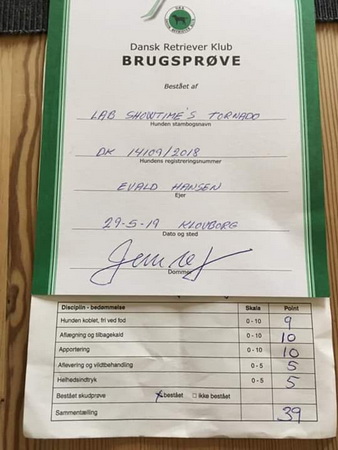 Dansk Retriever Klub
BRUGSPRØVE
Bestået af
LAB SHOWTIME'S TORNADO
Hunden stambogsnavn
DK 14109/2018
Hundens registreringsnummer
EVALD HANSEN
Ejer
29-5-19 KLOVBORG
Dato og sted
Dommer
Disciplin - bedømmelse Skala Point
Hunden koblet, fri ved fod 0 - 10 9
Aflægning og tilbagekald 0 - 10 10
Apportering 0 - 10 10
Aflevering og vildtbehandling 0 - 5 5
Helhedsindtryk 0 - 5 5
Bestået skudprøve x bestået □ ikke bestået
Sammentælling 39